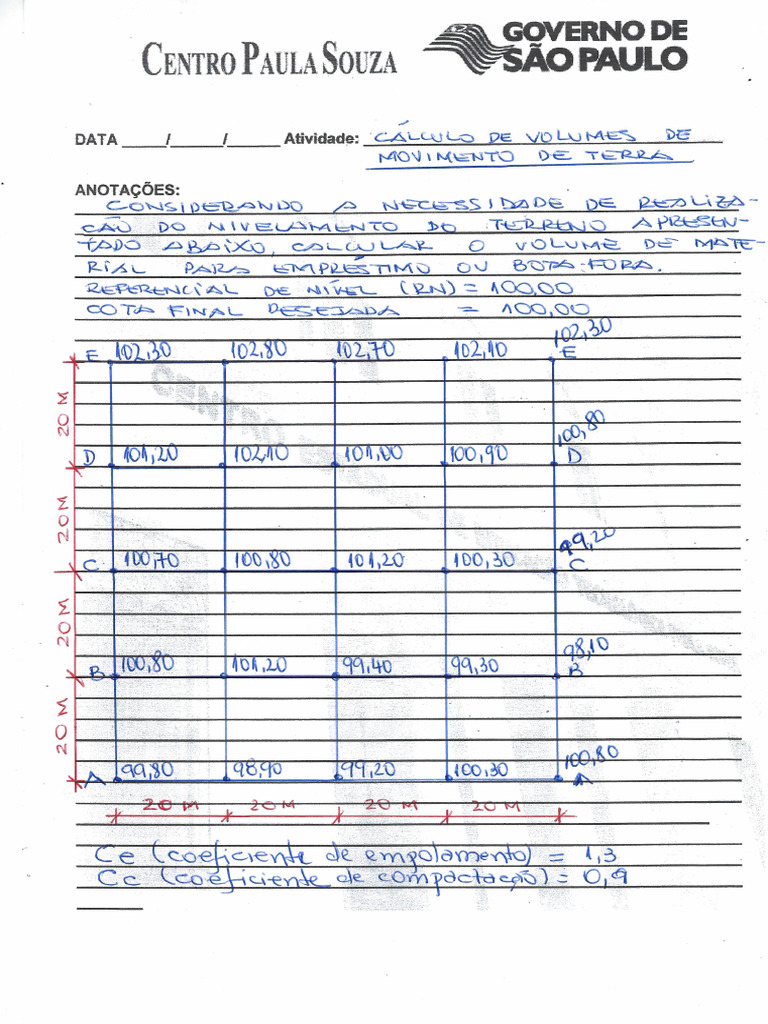 CENTRO PAULA SOUZA
GOVERNO DE
SÃO PAULO
DATA _____/_____/_____ Atividade: CÁLCULO DE VOLUMES DE
MOVIMENTO DE TERRA
ANOTAÇÕES:
CONSIDERANDO A NECESSIDADE DE REALIZA-
CÃO DO NIVELAMENTO DO TERRENO APRESEN-
TADO ABAIXO, CALCULAR O VOLUME DE MATE-
RIAL PARA EMPRÉSTIMO OU BOTA-FORA.
REFERENCIAL DE NÍVEL (RN) = 100,00
COTA FINAL DESEJADA = 100,00
E 102,30 102,80 102,70 102,10 102,30 E
20 M
D 101,20 102,10 101,00 100,90 100,80 D
20 M
C 100,70 100,80 101,20 100,30 99,20 C
20 M
B 100,80 101,20 99,40 99,30 98,10 B
20 M
A 99,80 98,90 99,20 100,30 100,80 A
20 M 20 M 20 M 20 M
Ce (coeficiente de empolamento) = 1,3
Cc (coeficiente de compactação) = 0,9